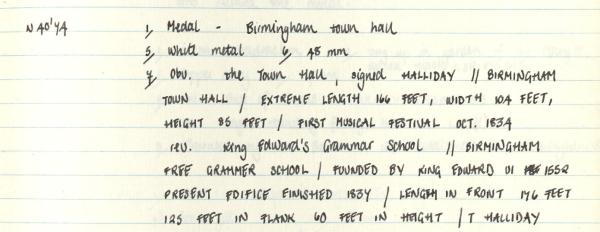 N40'74 1, Medal - Birmingham town hall
5, White metal 6, 48 mm
7, Obv. the Town Hall, signed HALLIDAY // BIRMINGHAM
TOWN HALL / EXTREME LENGTH 166 FEET, WIDTH 104 FEET,
HEIGHT 85 FEET / FIRST MUSICAL FESTIVAL OCT. 1834
rev. King Edward's Grammar School // BIRMINGHAM
FREE GRAMMER SCHOOL / FOUNDED BY KING EDWARD VI 1552
PRESENT EDIFICE FINISHED 1834 / LENGTH IN FRONT 176 FEET
125 FEET IN FLANK 60 FEET IN HEIGHT / T HALLIDAY